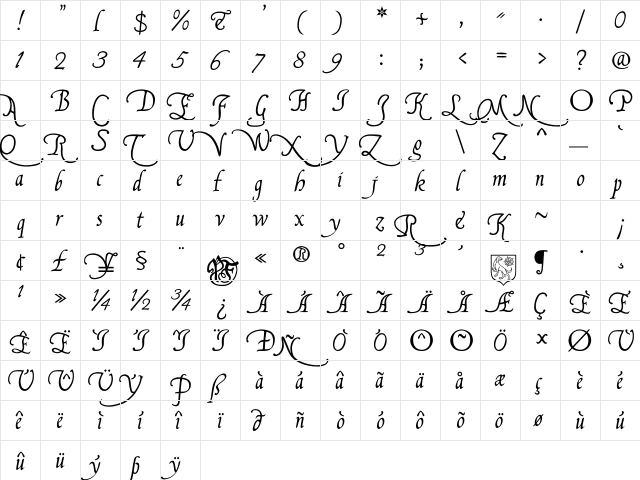 ! " ſ $ % & ' ( ) * + , - . / 0
1 2 3 4 5 6 7 8 9 : ; < = > ? @
A B C D E F G H I J K L M N O P
Q R S T U V W X Y Z \ ^ _ `
a b c d e f g h i j k l m n o p
q r s t u v w x y z R K ~ ¡
¢ £ ¥ § ¨ « ® ° 2 3 ´ ¶ · ¸
1 » ¼ ½ ¾ ¿ À Á Â Ã Ä Å Æ Ç È É
Ê Ë Ì Í Î Ï Ð Ñ Ò Ó Ô Õ Ö × Ø Ù
Ú Û Ü Ý Þ ß à á â ã ä å æ ç è é
ê ë ì í î ï ð ñ ò ó ô õ ö ø ù ú
û ü ý þ ÿ